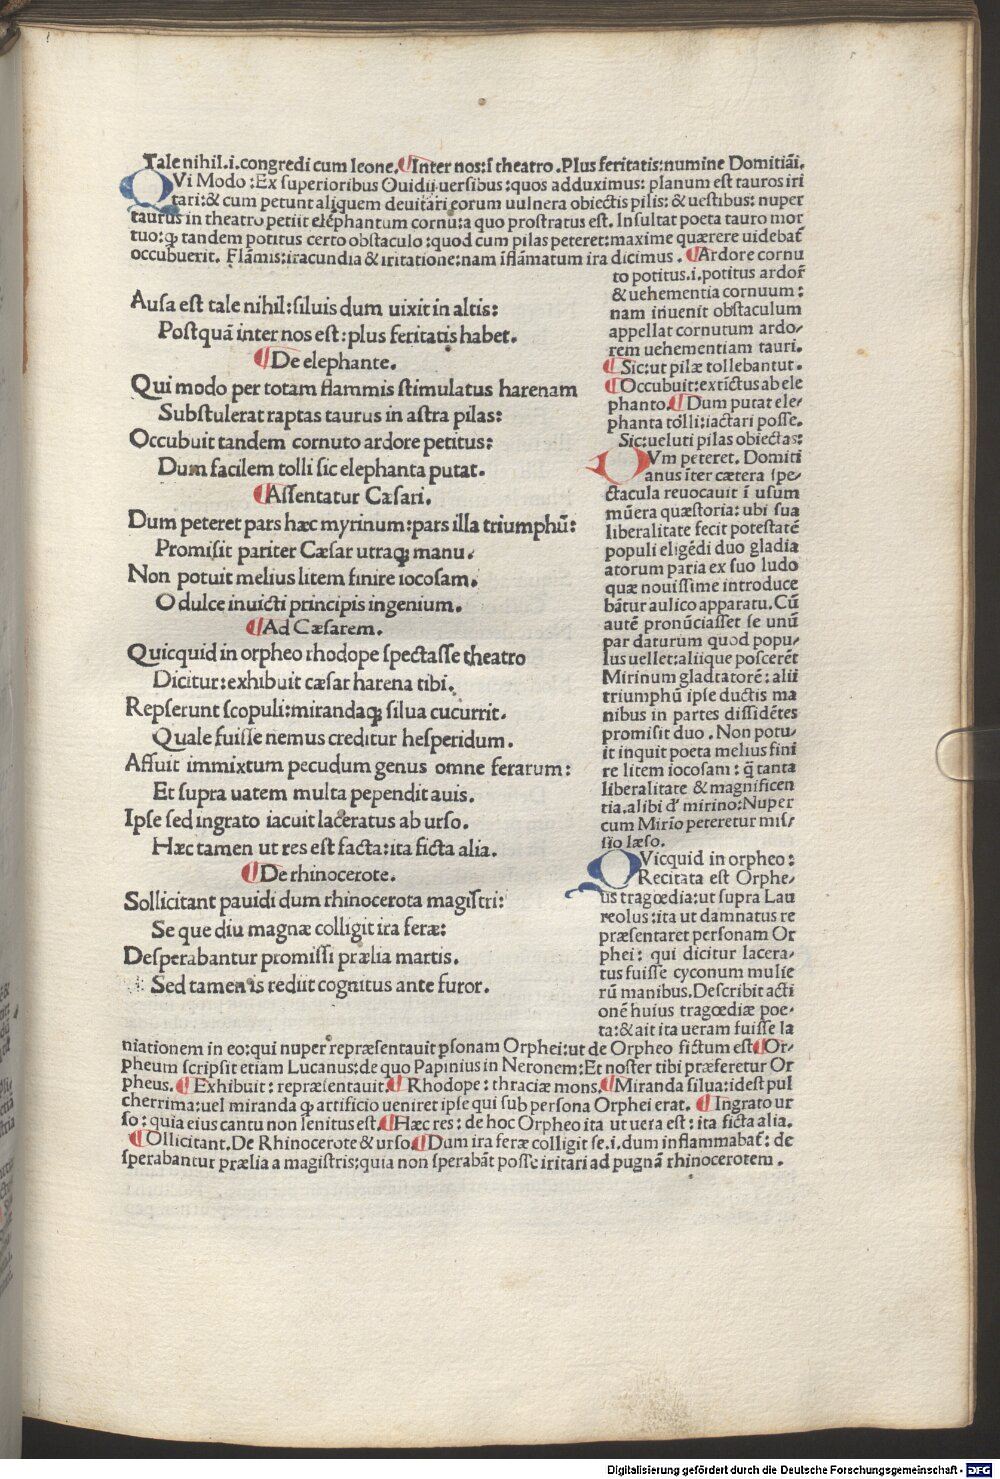 Tale nihil.i.congredi cum leone.¶Inter nos:ſ theatro.Plus feritatis:numine Domitiāi.
QVi Modo :Ex ſuperioribus Ouidij uerſibus :quos adduximus: planum eſt tauros iri
tari:& cum petunt aliquem deuitari eorum uulnera obiectis pilis: & ueſtibus: nuper
taurus in theatro petiit elephantum cornu:a quo proſtratus eſt. Inſultat poeta tauro mor
tuo:ꝙ tandem potitus certo obſtaculo :quod cum pilas peteret:maxime quærere uidebat̄
occubuerit. Flāmis:iracundia & iritatione:nam iflāmatum ira dicimus .¶Ardore cornu
to potitus.i.potitus ardor̄
& uehementia cornuum :
nam inuenit obſtaculum
appellat cornutum ardo⸗
rem uehementiam tauri.
¶Sic:ut pilæ tollebantut.
¶Occubuit:extictus ab ele
phanto.¶Dum putat ele⸗
phanta tolli:iactari poſſe.
Sic:ueluti pilas obiectas:
Auſa eſt tale nihil:ſiluis dum uixit in altis:
Poſtquā inter nos eſt:plus feritatis habet.
¶De elephante.
Qui modo per totam flammis ſtimulatus harenam
Subſtulerat raptas taurus in aſtra pilas:
Occubuit tandem cornuto ardore petitus:
Dum facilem tolli ſic elephanta putat.
¶Aſſentatur Cæſari.
Dum peteret pars hæc myrinum:pars illa triumphū:
Promiſit pariter Cæſar utraqꝫ manu.
Non potuit melius litem finire iocoſam.
O dulce inuicti principis ingenium.
¶Ad Cæſarem.
Quicquid in orpheo rhodope ſpectaſſe theatro
Dicitur:exhibuit cæſar harena tibi.
Repſerunt ſcopuli:mirandaqꝫ ſilua cucurrit.
Quale fuiſſe nemus creditur heſperidum.
Affuit immixtum pecudum genus omne ferarum:
Et ſupra uatem multa pependit auis.
Ipſe ſed ingrato iacuit laceratus ab urſo.
Hæc tamen ut res eſt facta:ita ficta alia.
¶De rhinocerote.
Sollicitant pauidi dum rhinocerota magiſtri:
Se que diu magnæ colligit ira feræ:
Deſperabantur promiſſi prælia martis.
Sed tamen is rediit cognitus ante furor.
DVm peteret. Domiti
anus iter cætera ſpe⸗
ctacula reuocauit ī uſum
mūera quæſtoria: ubi ſua
liberalitate fecit poteſtatē
populi eligēdi duo gladia
atorum paria ex ſuo ludo
quæ nouiſſime introduce
bātur aulico apparatu. Cū
autē pronūciaſſet ſe unū
par daturum quod popu⸗
lus uellet:aliique poſcerēt
Mirinum gladtatorē: alii
triumphū ipſe ductis ma
nibus in partes diſſidētes
promiſit duo . Non potu⸗
it inquit poeta melius fini
re litem iocoſam : q̄ tanta
liberalitate & magnificen
tia.alibi d' mirino:Nuper
cum Mirīo peteretur miſ⸗
ſio læſo.
QVicquid in orpheo :
Recitata eſt Orphe⸗
us tragœdia:ut ſupra Lau
reolus :ita ut damnatus re
præſentaret perſonam Or
phei : qui dicitur lacera⸗
tus fuiſſe cyconum mulie
rū manibus.Deſcribit acti
onē huius tragœdiæ poe⸗
ta:& ait ita ueram fuiſſe la
niationem in eo:qui nuper repræſentauit pſonam Orphei:ut de Orpheo fictum eſt¶Or⸗
pheum ſcripſit etiam Lucanus:de quo Papinius in Neronem:Et noſter tibi præferetur Or
pheus.¶Exhibuit : repræſentauit.¶Rhodope : thraciæ mons.¶Miranda ſilua:ideſt pul
cherrima:uel miranda ꝙ artificio ueniret ipſe qui ſub perſona Orphei erat. ¶Ingrato ur
ſo : quia eius cantu non lenitus eſt.¶Hæc res : de hoc Orpheo ita ut uera eſt : ita ficta alia.
¶Ollicitant.De Rhinocerote & urſo.¶Dum ira feræ colligit ſe.i.dum inflammabat̄: de
ſperabantur prælia a magiſtris:quia non ſperabāt poſſe iritari ad pugnā rhinocerotem .
Digitalisierung gefördert durch die Deutsche Forschungsgemeinschaft - DFG